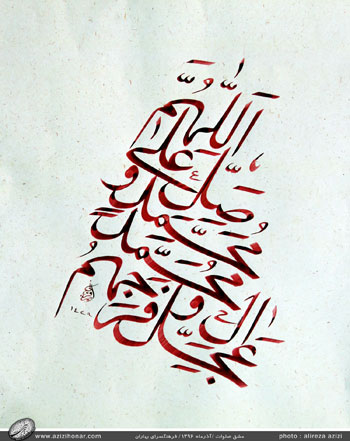 اللّهم
صلّ علی
محمّد و
آل محمّد
و عجّل فرجهم
۱۴۳۹
مشق صلوات / آذرماه ۱۳۹۶ / فرهنگسرای بهاران
www.azizihonar.com
photo : alireza azizi